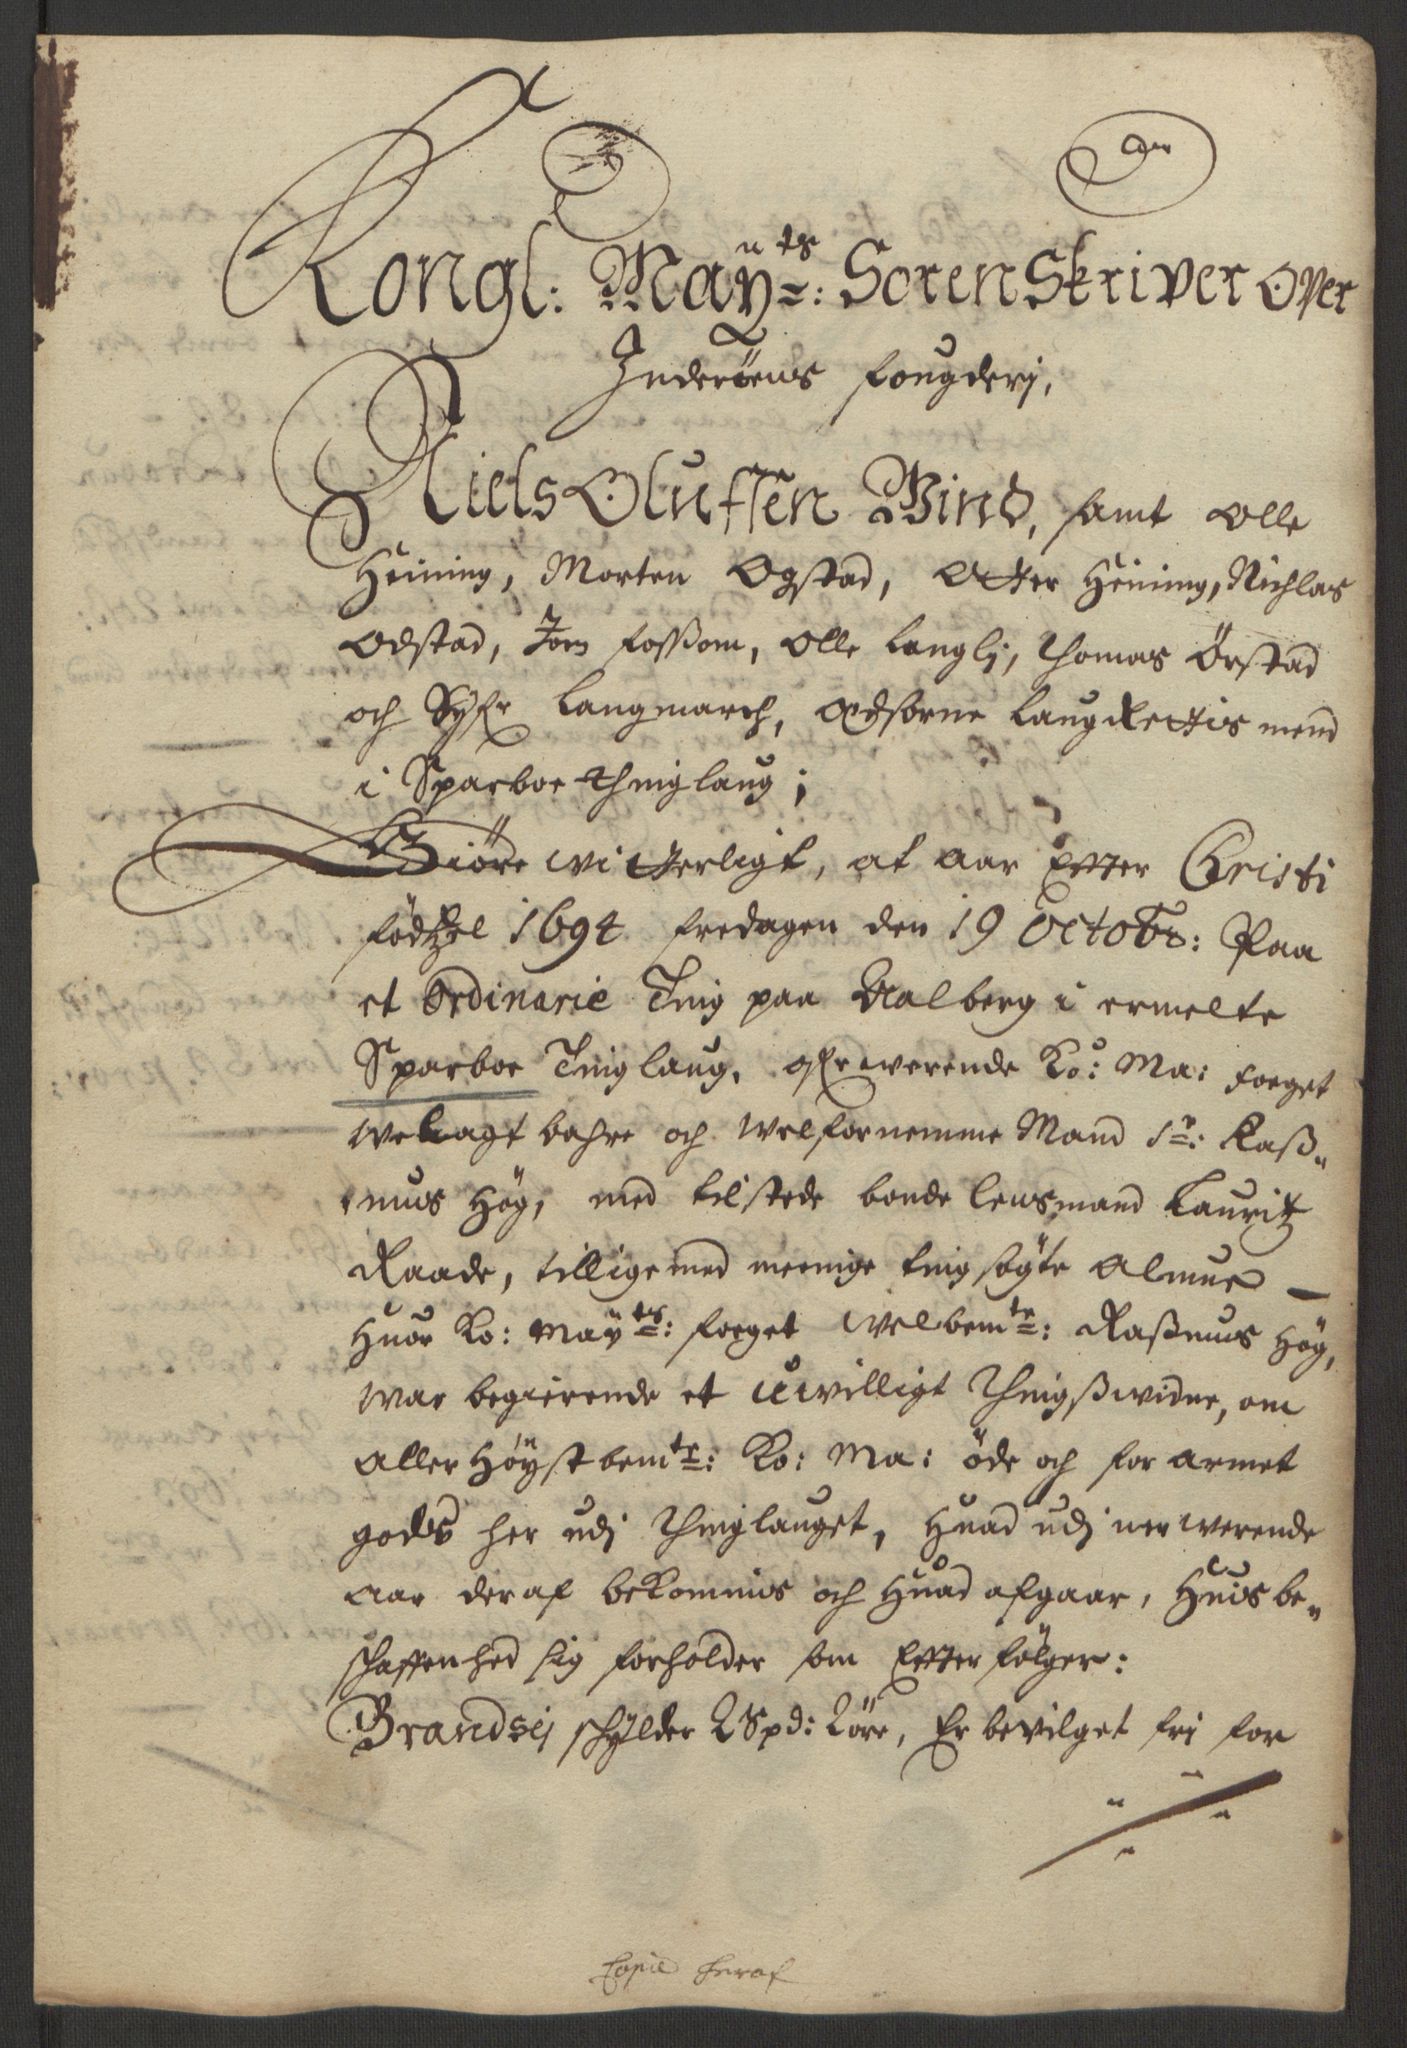 Kongl: Maÿts: Sorenskriver over
Inderöens fougderj,
Niels Olufsen Wind, samt Olle
Heining, Morten Ogstad, Otter Heining, Nichlas
Odstad, Jon Fossom, Olle Langlj, Thomas Örstad
och Syfr Langmarch, Edsorne Laug Rettis mend
i Sparboe Thinglaug;
Giöre witterligt, at aar Efter Christi
födtzel 1694 fredagen den 19 Octobr: Paa
et Ordinarie Ting paa Aalberg i ermelte
Sparboe Tinglaug, ofr werende Ko: Ma: foeget
Welagtbahre och Welfornemme Mand Sr: Raß„
mus Hög, med tilstede bonde lensmand Lauritz
Raade, tillige med meenige ting søgte Almue —
Huor Ko: Maÿts: foeget Welbemte: Raßmus Hög,
War begierende et uwilligt Thingßwidne, om
Aller Höÿstbemte: Ko: Ma: öde och for armet
gods her udj Thinglauget, Huad udj nerwerende
Aar deraf bekommis och Huad afgaar, Huis be„
schaffenhed sig forholder som Efter følger:
Brandsej schylder 2 Spd: 2 öre, Er bevilget frj for
Copie heraf